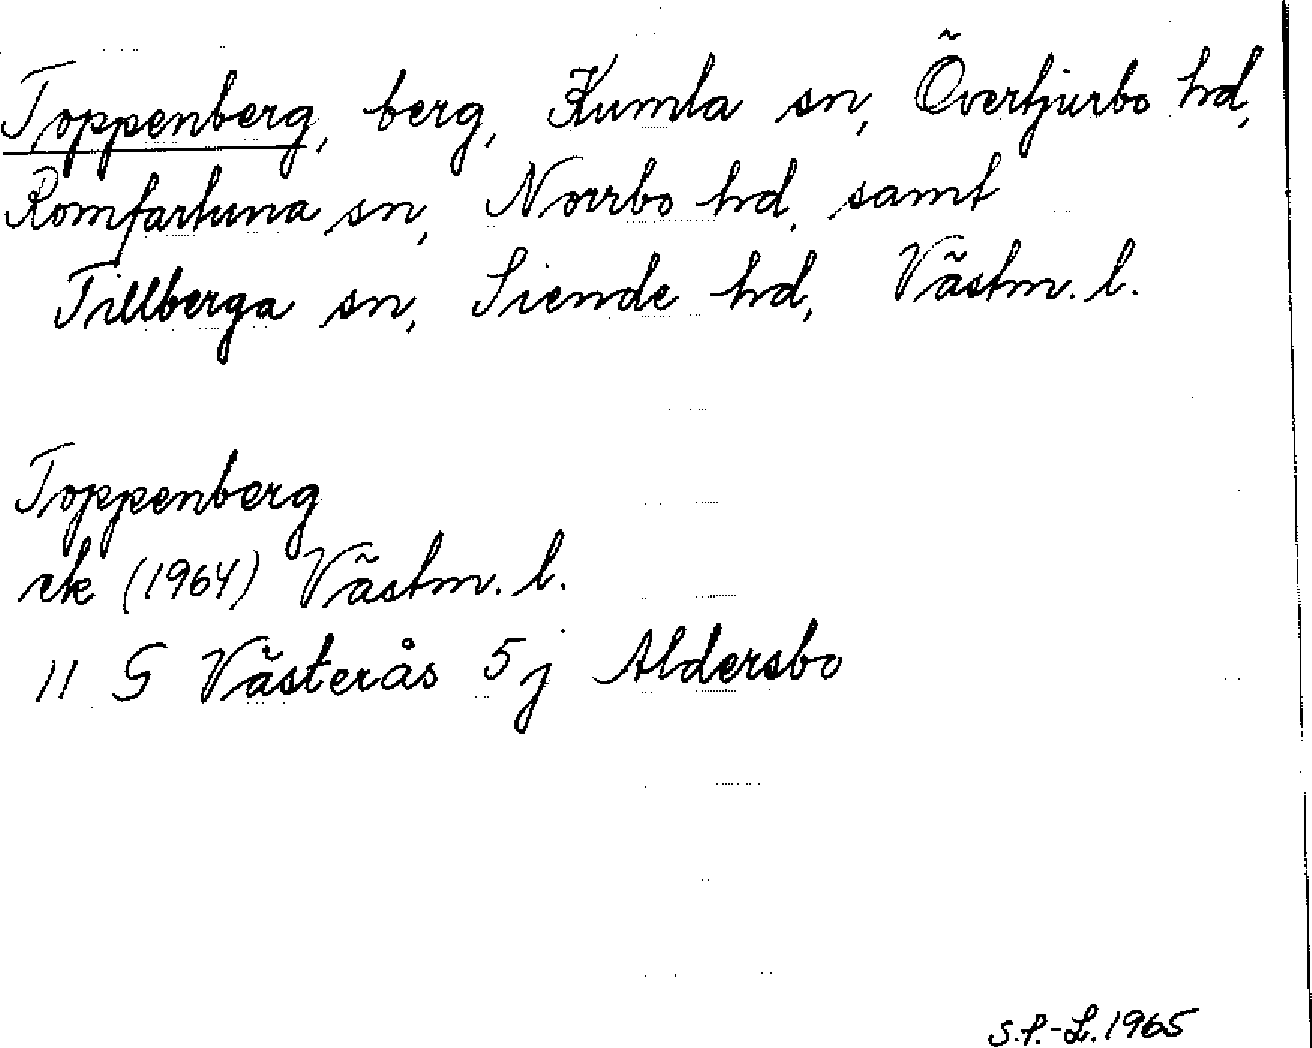 Toppenberg, berg, Kumla sn, Övertjurbo hd,
Romfartuna sn, Norrbo hd, samt
Tillberga sn, Siende hd, Västm. l.
Toppenberg
ek (1964) Västm. l.
11 G Västerås 5j Aldersbo
S.P.-L. 1965